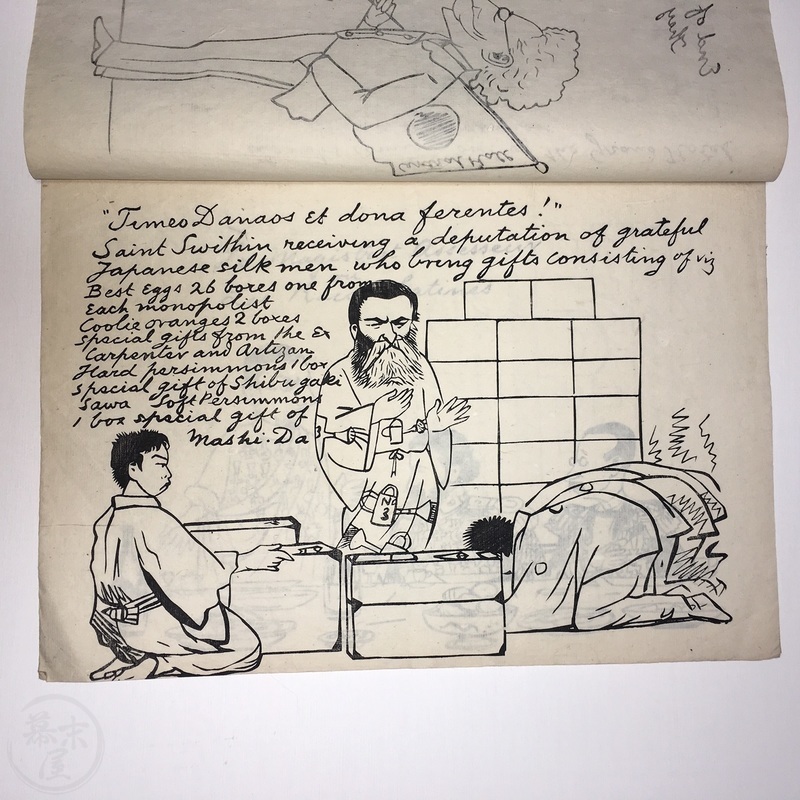 "Timeo Danaos et dona ferentes!"
Saint Swithin receiving a deputation of grateful
Japanese silk men who bring gifts consisting of viz
Best Eggs 26 boxes one from
Each monopolist
Coolie oranges 2 boxes
special gifts from the Ex
Carpenter and Artizan
Hard persimmons 1 box
special gift of Shibugaki
Sawa Soft Persimmons
1 box special gift of
Mashi-Da
No
3
Central Hall
幕末屋